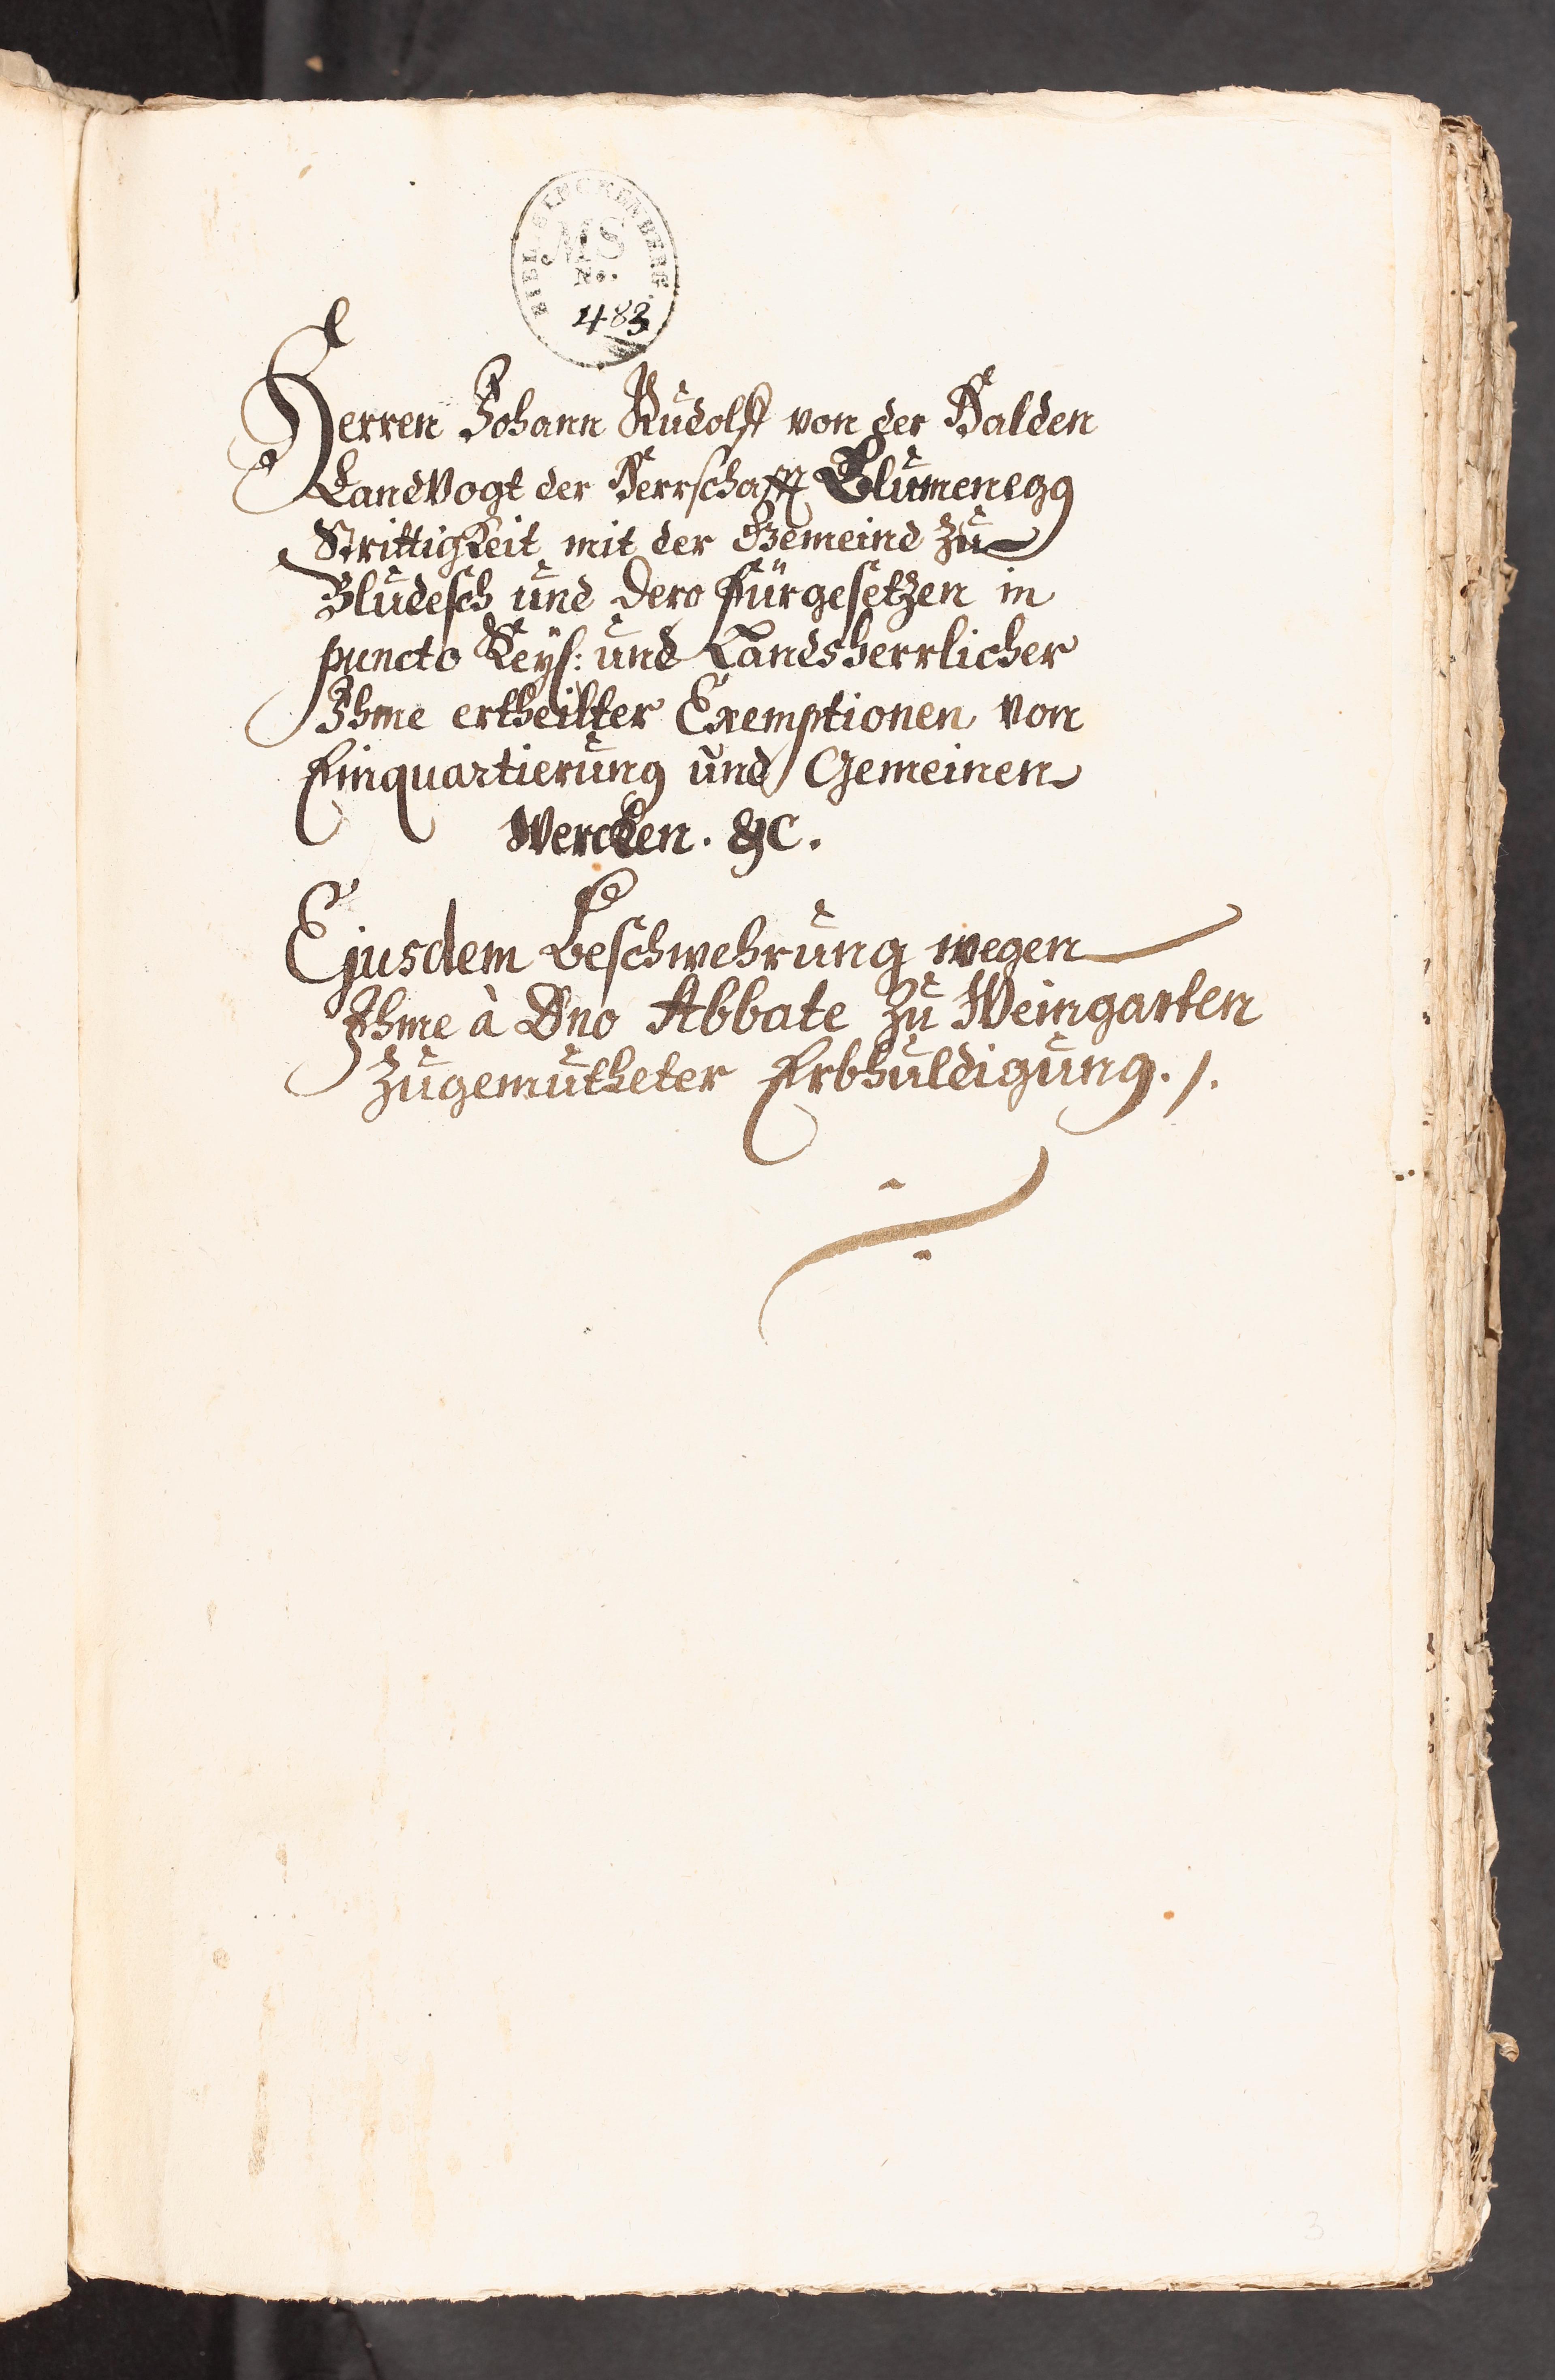 BIBL. SENCKENBERG.
MS
No.
483
Herren Johann Rudolff von der Halden
LandVogt der Herrschafft Blumenegg
Strittigkeit mit der Gemeind zu
Bludesch und dero fürgesetzen in
puncto Keys: und Landsherrlicher
Ihme ertheilter Exemptionen von
Einquartierung und Gemeinen
Wercken. &c.
Ejusdem Beschwehrung wegen
Ihme à Dno Abbate zu Weingarten
zugemutheter Erbhuldigung. /.
3